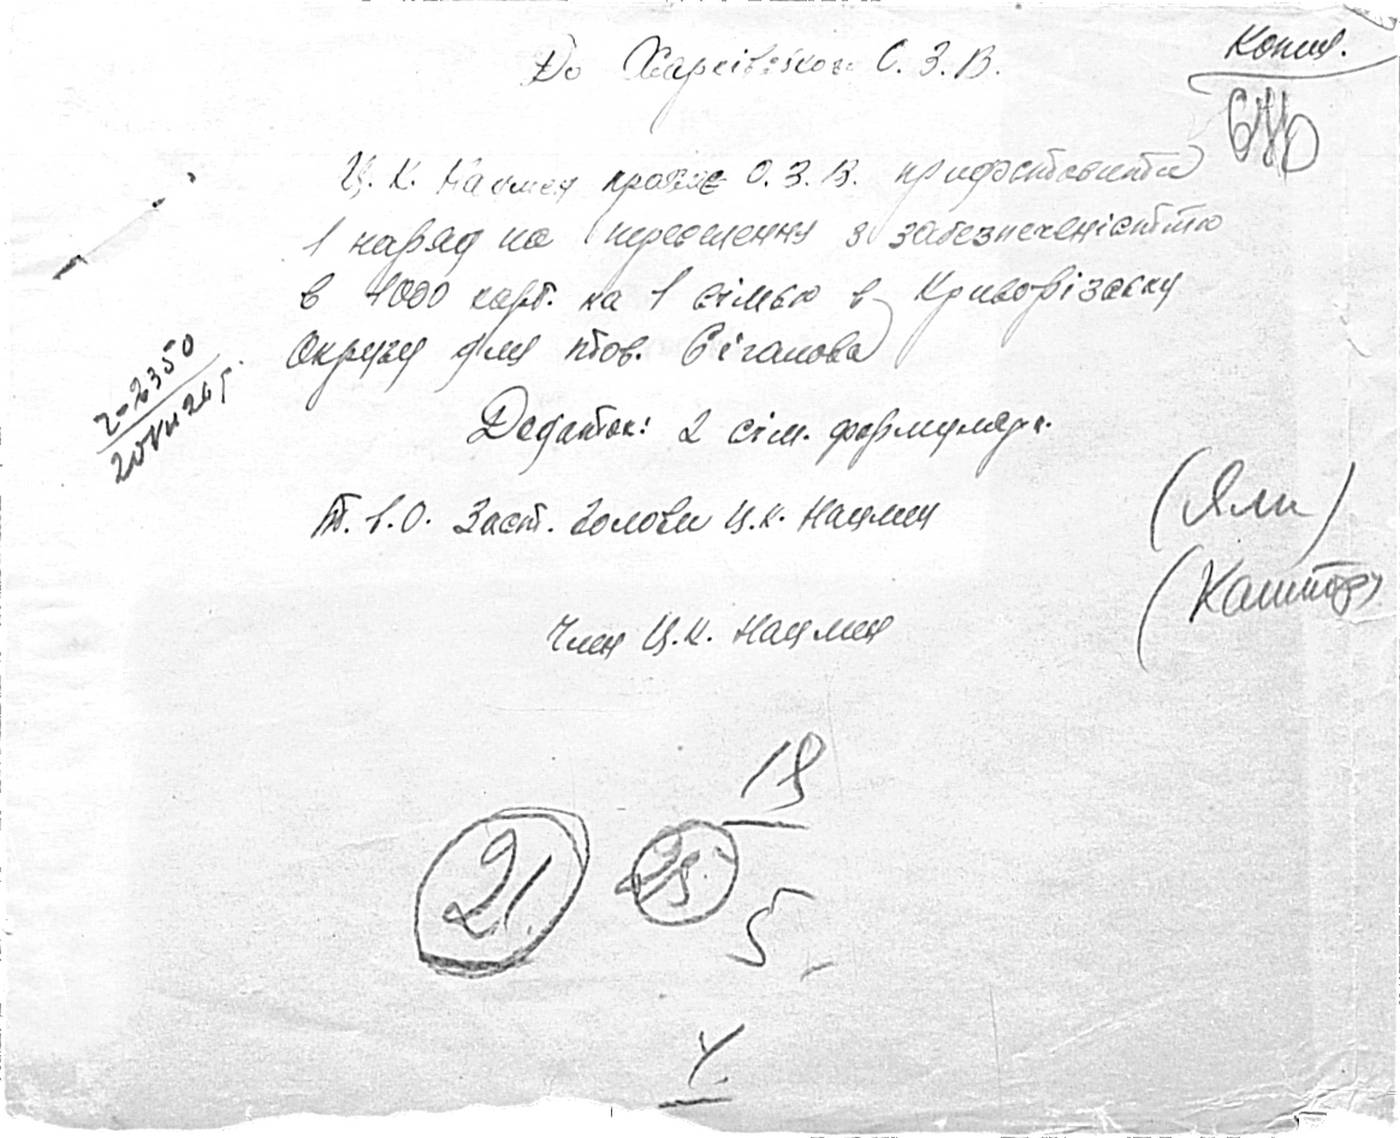 Копия.
До Харківського О.З.В.
Ц.К. Нацмен прохає О.З.В. предоставити
1 наряд на переселення з забезпеченісттю
в 1000 карб. на 1 сімью в Криворізську
Округу для тов. Сіганова
Додаток: 2 сім. формуляри.
т.в.о. Заст. Голови Ц.К. Нацмен
(Яли)
(Кантор)
Член Ц.К. Нацмен
2-2350
20/VII 26 г.
19
21.
25.
5